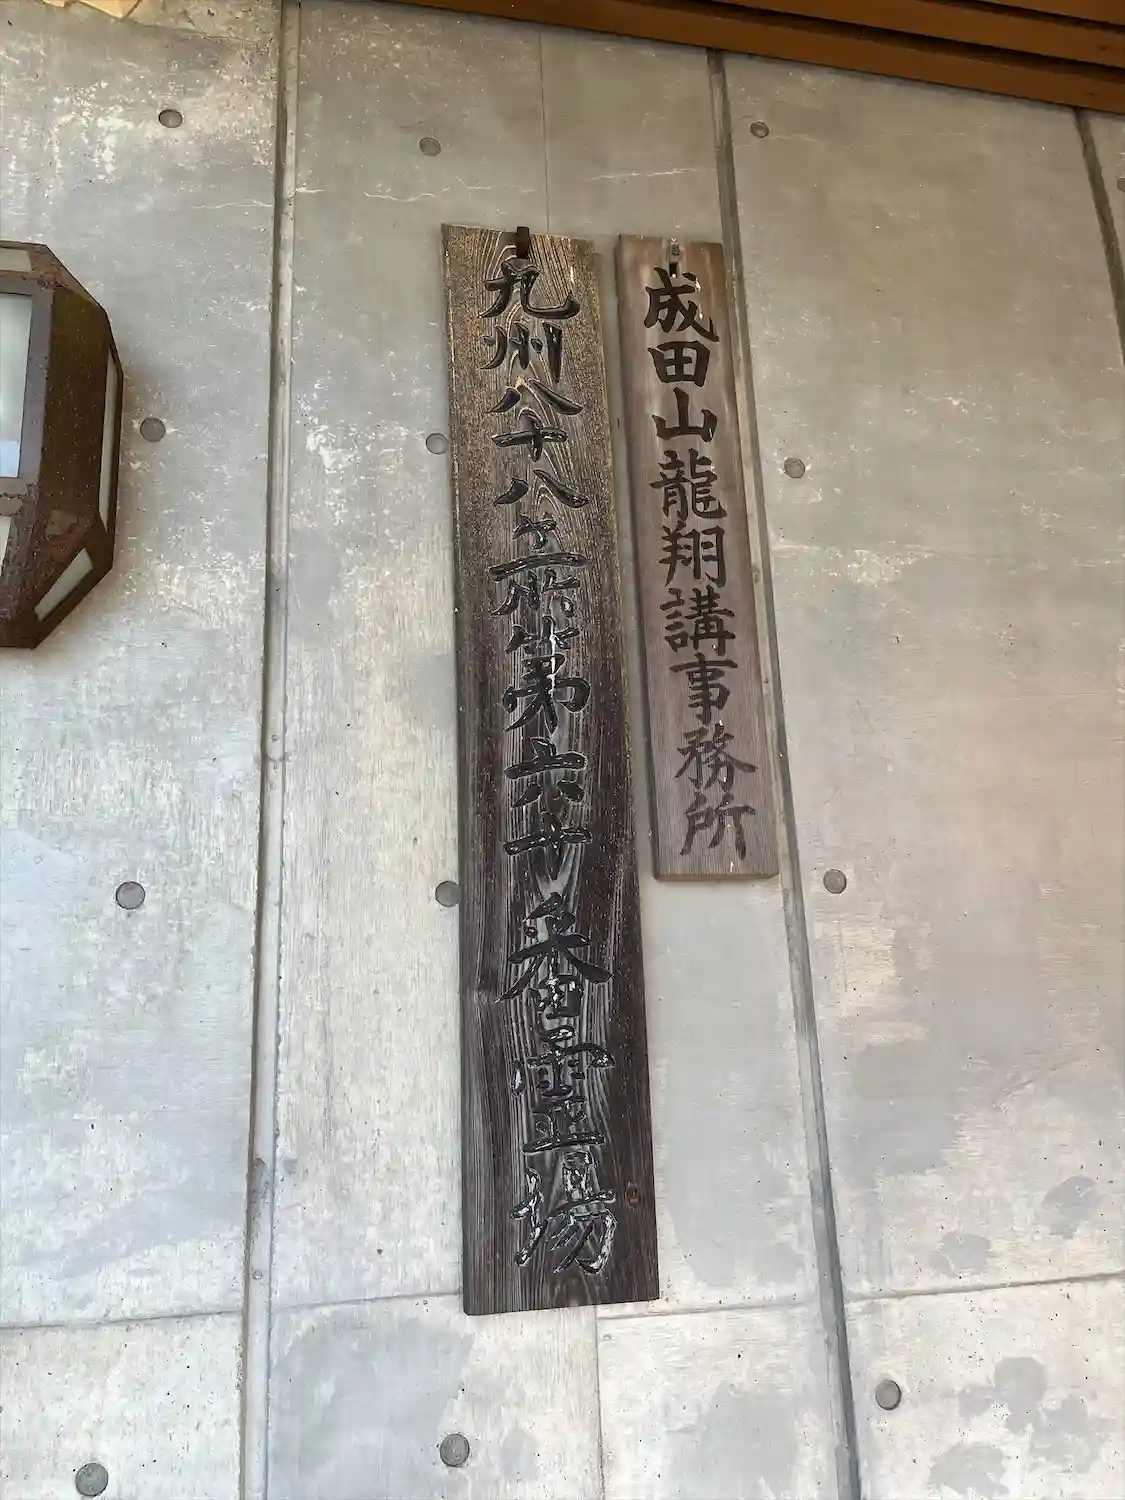 成田山龍翔講事務所
九州八十八ヶ所第六十番霊場